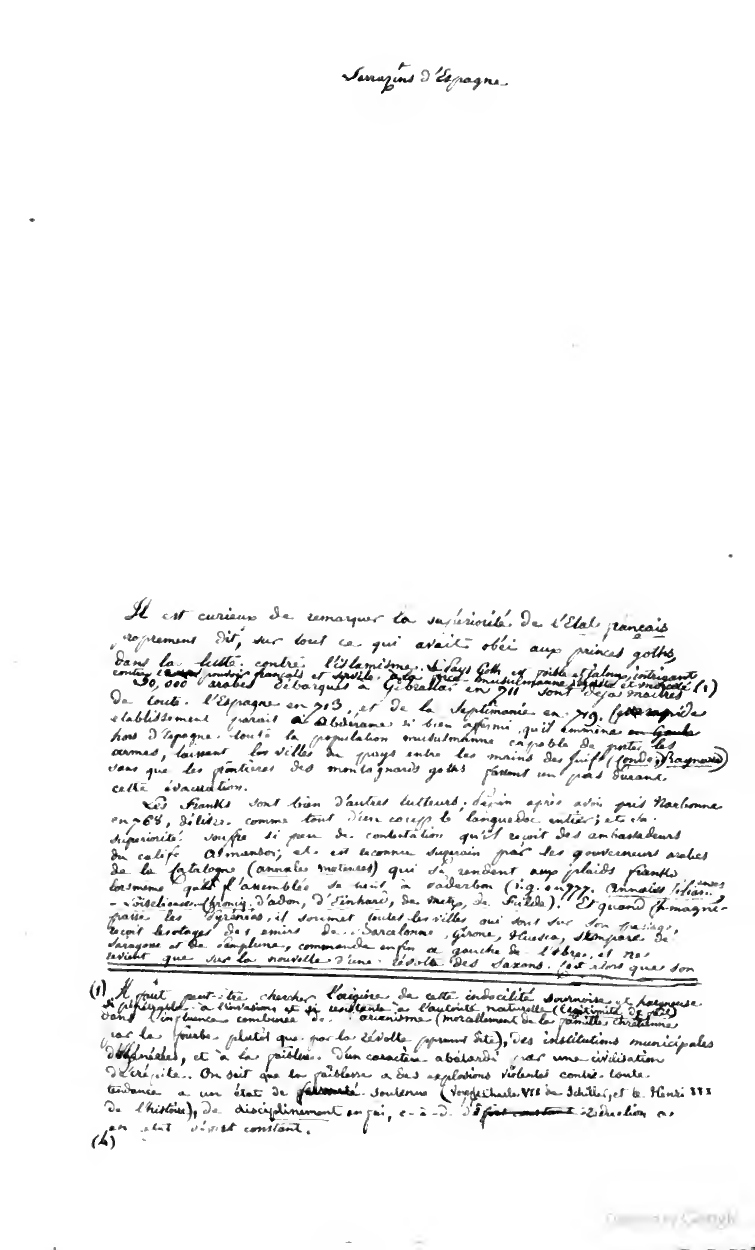 Sarrazins d'Espagne
Il est curieux de remarquer la supériorité de l'Etat français
proprement dit, sur tout ce qui avait obéi aux princes goths,
dans la lutte contre l'islamisme. Le Pays Goth est faible et jaloux, intrigant
contre pouvoir français et servile musulmanne (1)
30,000 arabes débarqués à Gibraltar en 711 sont déjà maîtres
de toute l'Espagne en 713, et de la Septimanie en 719.
etablissement parait à Abdérame si bien affermi qu'il emmène en Gaule
hors d'Espagne toute la population musulmanne capable de porter les
armes, laissant les villes du pays entre les mains des juifs
sans que les des montagnards goths fassent un pas durant
cette évacuation.
Les Franks sont bien d'autres lutteurs. Pépin après avoir pris Narbonne
en 768, délivre comme tout d'un coup le languedoc entier; et sa
superiorité souffre si peu de contestation qu'il reçoit des ambassadeurs
du calife Almansor; et est reconnu suzerain par les gouverneurs arabes
de la Catalogne (annales metenses) qui se rendent aux plaids franks
lorsmême que l'assemblée se tient à Paderborn (i.g. en 777. Annales
(chroniq. d'adon, d'Einhard, de Metz, de Fulde). Et quand Ch.magne
passe les Pyrénées, il soumet toutes les villes qui sont sur son passage,
reçoit les otages des emirs de Barcelonne, Girone, Huesca, s'empare de
Saragosse et de Pampelune, commande enfin à gauche de l'Ebre, et ne
revient que sur la nouvelle d'une révolte des Saxons. C'est alors que son
(1) Il faut peut-être chercher l'origine de cette indocilité sournoise et hargneuse
si pénétrable à l'invasion et si résistante à l'autorité naturelle (légitimité de
dans l'influence combinée de l'arianisme (morcellement de la famille chrétienne
par la fourbe plutôt que par la révolte proprement dite), des institutions municipales
et à la faiblesse d'un caractère abâtardi par une civilisation
décrépite. On sait que la faiblesse a des explosions violentes contre toute
tendance à un état de soutenu (voyez Charles VII de Schiller, et le Henri III
de l'histoire), de disciplinement en soi, c-à-d. de direction à
un état constant.
(2)